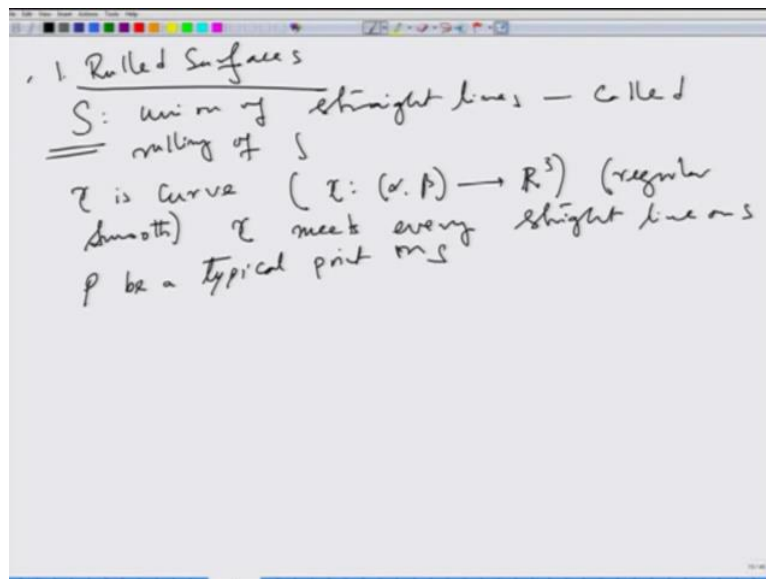 1. Rulled Surfaces
S: union of straight lines — called
rulling of S
γ is curve ( γ: (α, β) → ℝ³) (regular
smooth) γ meets every straight line on S
p be a typical point on S